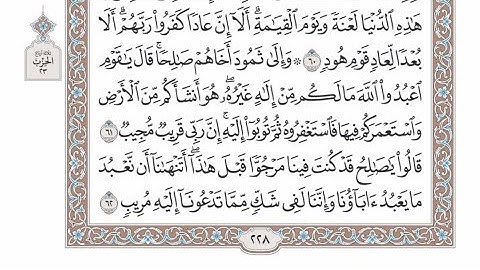 هَٰذِهِ ٱلدُّنْيَا لَعْنَةً وَيَوْمَ ٱلْقِيَٰمَةِۗ أَلَآ إِنَّ عَادًا كَفَرُوا۟ رَبَّهُمْۗ أَلَا
بُعْدًا لِّعَادٍ قَوْمِ هُودٍ ٦٠ ۞ وَإِلَىٰ ثَمُودَ أَخَاهُمْ صَٰلِحًاۚ قَالَ يَٰقَوْمِ
ٱعْبُدُوا۟ ٱللَّهَ مَا لَكُم مِّنْ إِلَٰهٍ غَيْرُهُۥۖ هُوَ أَنشَأَكُم مِّنَ ٱلْأَرْضِ
وَٱسْتَعْمَرَكُمْ فِيهَا فَٱسْتَغْفِرُوهُ ثُمَّ تُوبُوٓا۟ إِلَيْهِۚ إِنَّ رَبِّى قَرِيبٌ مُّجِيبٌ ٦١
قَالُوا۟ يَٰصَٰلِحُ قَدْ كُنتَ فِينَا مَرْجُوًّا قَبْلَ هَٰذَآۖ أَتَنْهَىٰنَآ أَن نَّعْبُدَ
مَا يَعْبُدُ ءَابَآؤُنَا وَإِنَّنَا لَفِى شَكٍّ مِّمَّا تَدْعُونَآ إِلَيْهِ مُرِيبٍ ٦٢
الحزب
٢٣
٢٢٨